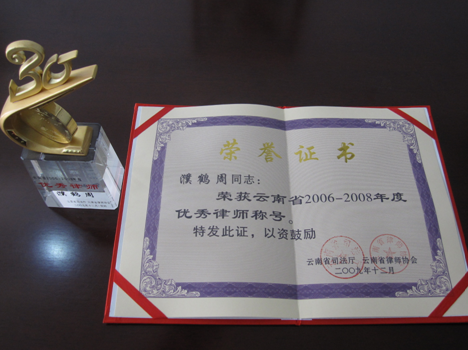 30
优秀律师
濮鹤周
荣誉证书
濮鹤周同志：
荣获云南省2006-2008年度
优秀律师称号。
特发此证，以资鼓励
云南省司法厅 云南省律师协会
二〇〇九年十二月